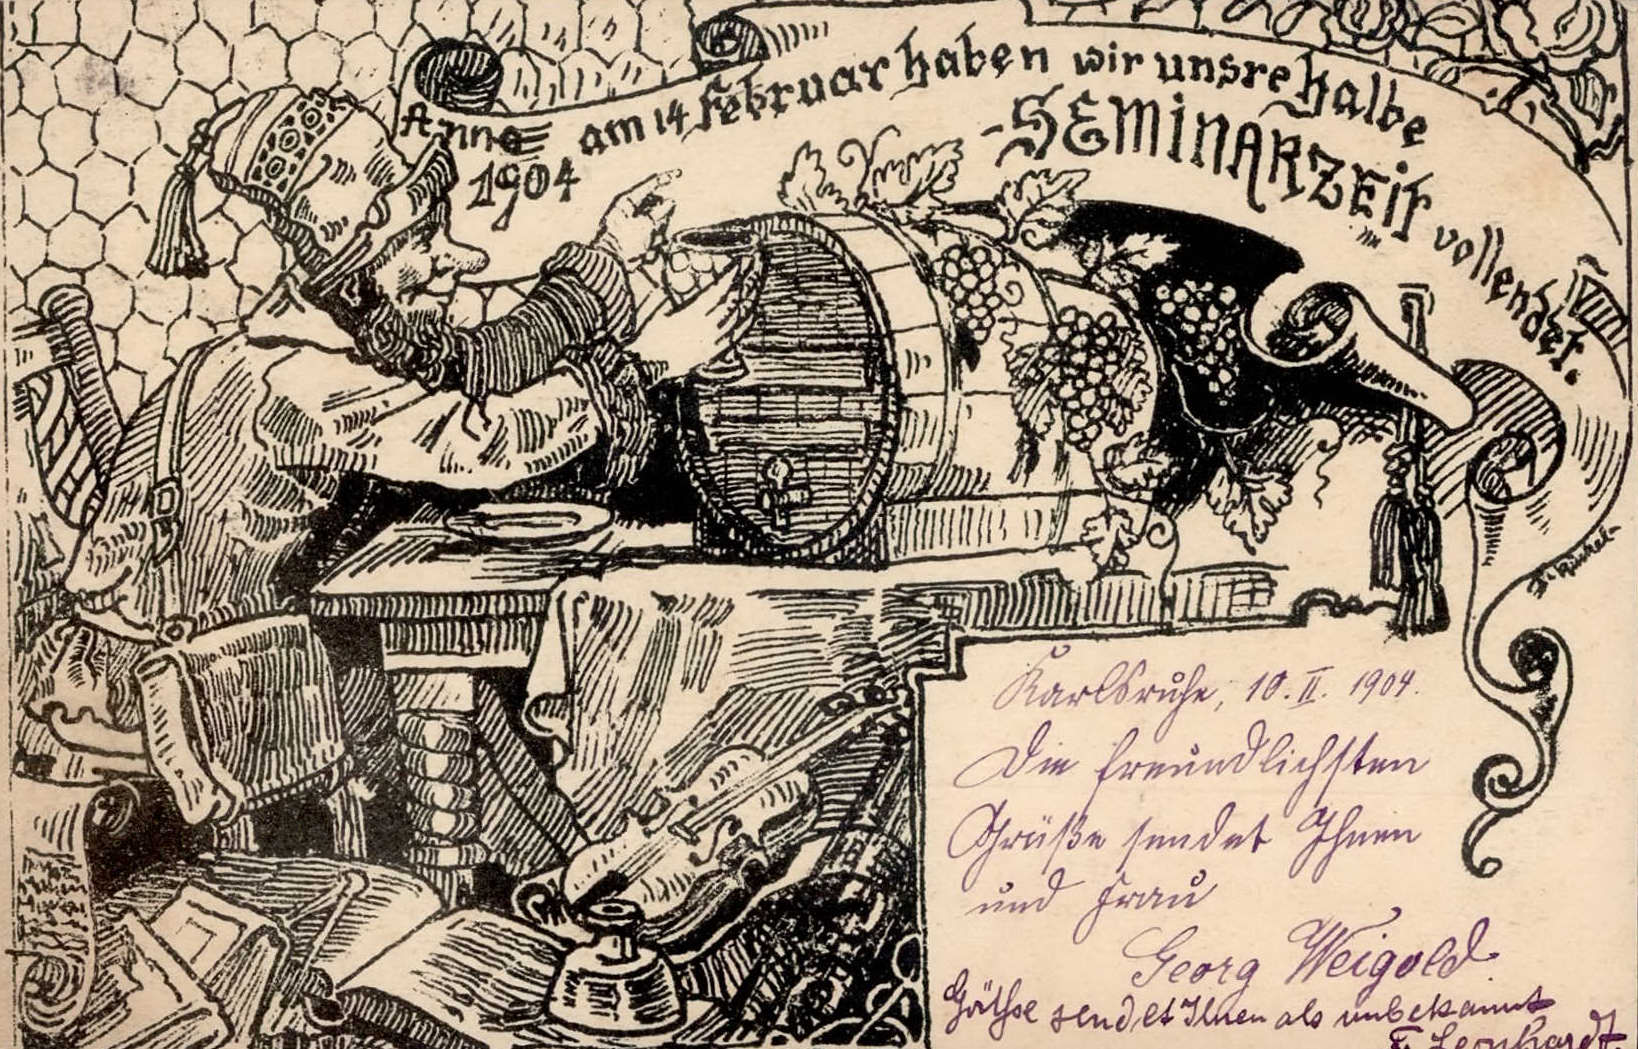 Anno 1904 am 14 Februar haben wir unsre halbe
SEMINARZEIT vollendet.
Karlsruhe, 10. II. 1904.
Die freundlichsten
Grüße sendet Ihnen
und Frau
Georg Weigold
sendet Ihnen als unbekannt
Leonhardt.